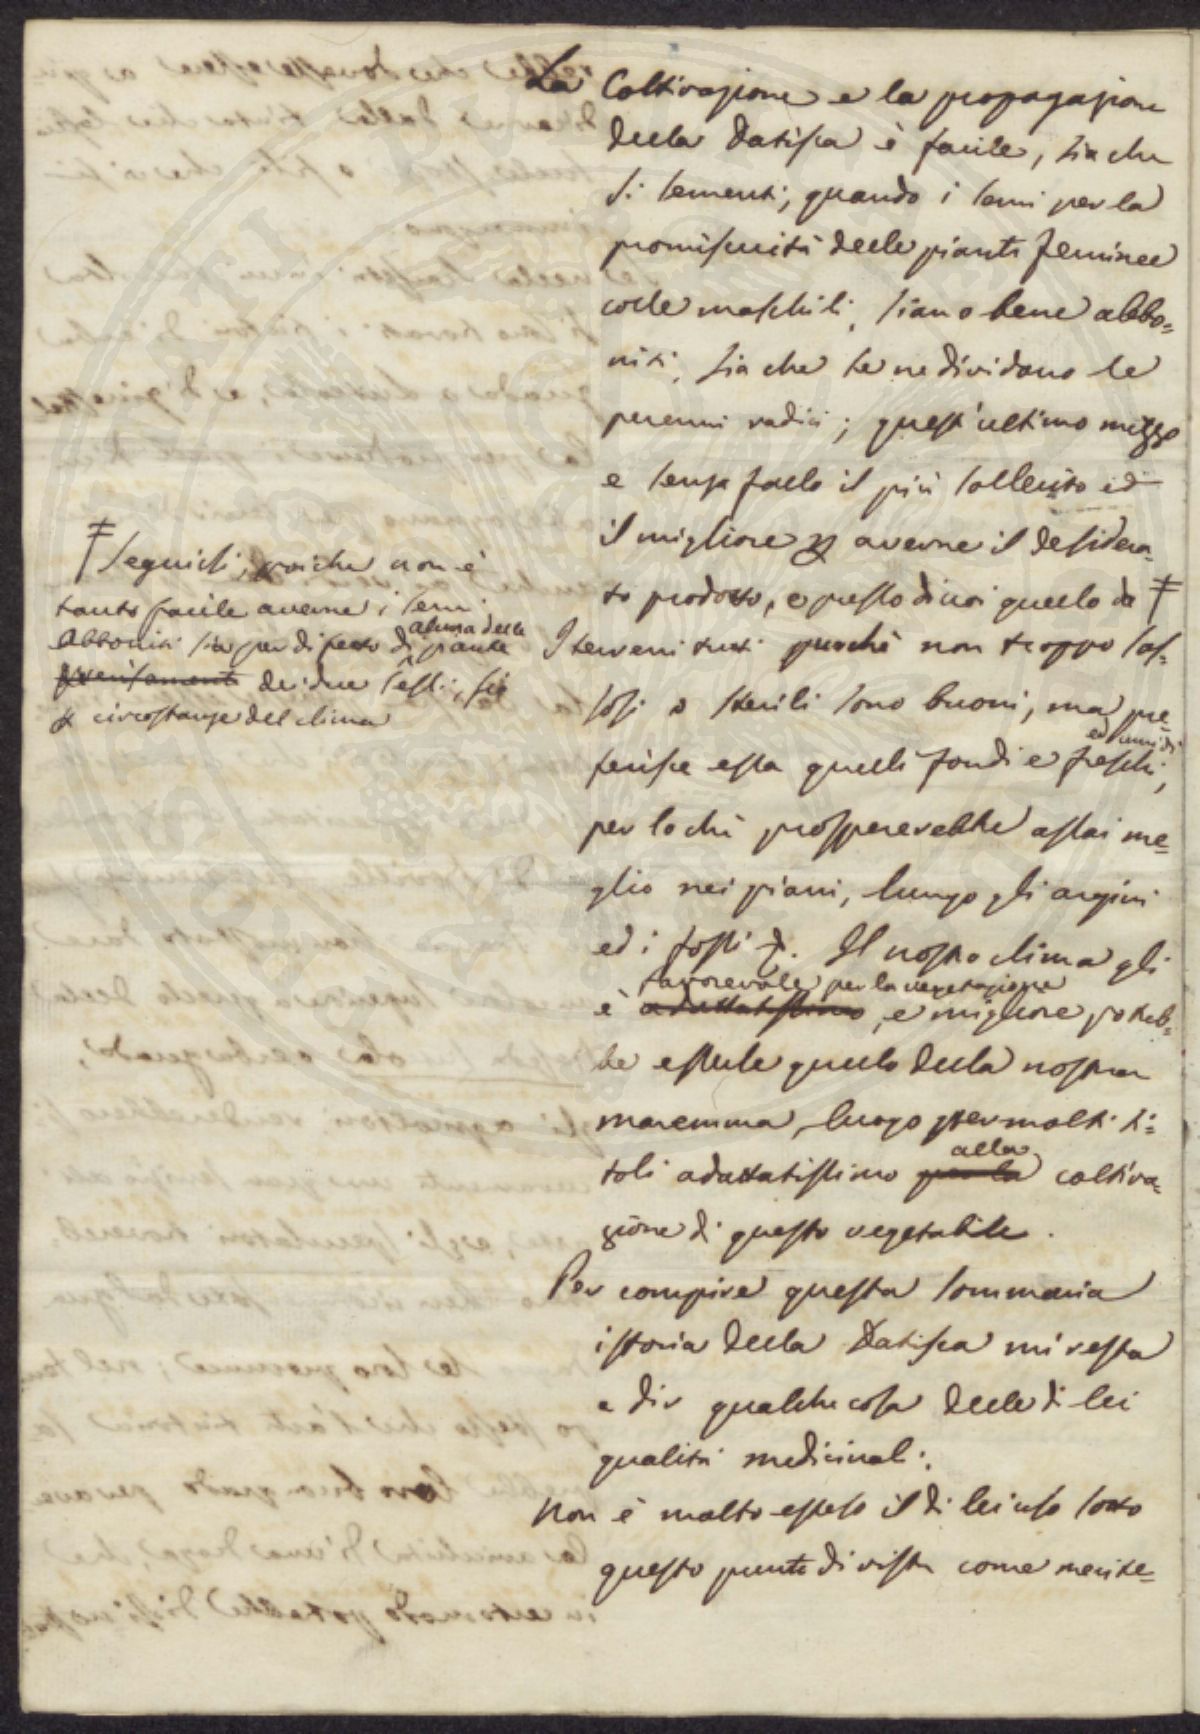 La Coltivazione e la propagazione
della Datisca è facile, sia che
si sementi, quando i semi per la
promiscuità delle piante feminee
colle maschili, siano bene abbo=
niti, sia che se ne dividano le
perenni radici; quest'ultimo mezzo
e senza fallo il più sollecito ed
il migliore per averne il desidera=
to prodotto, e questo di noi quello da ‡
I terreni tutti purchè non troppo sas=
sosi o sterili sono buoni, ma pre=
ed umidi
ferisce essa quelli fondi e freschi,
per lo chè prospererebbe assai me=
glio nei piani, lungo gli argini
ed i fossi &. Il nostro clima gli
favorevole per la vegetazione
è adattatissimo, e migliore potreb=
be essere quello della nostra
maremma, luogo per molti ti=
alla
toli adattatissimo per la coltiva=
zione di questo vegetabile.
Per compire questa sommaria
istoria della Datisca mi resta
a dir qualche cosa delle di lei
qualità medicinali.
Non è molto esteso il di lei uso sotto
questo punto di vista come merite=
‡ seguirsi, poiche non è
tanto facile averne i semi
alcuna delle
abboniti sia per difetto di piante
precisamente dei due sessi, sia
per circostanze del clima